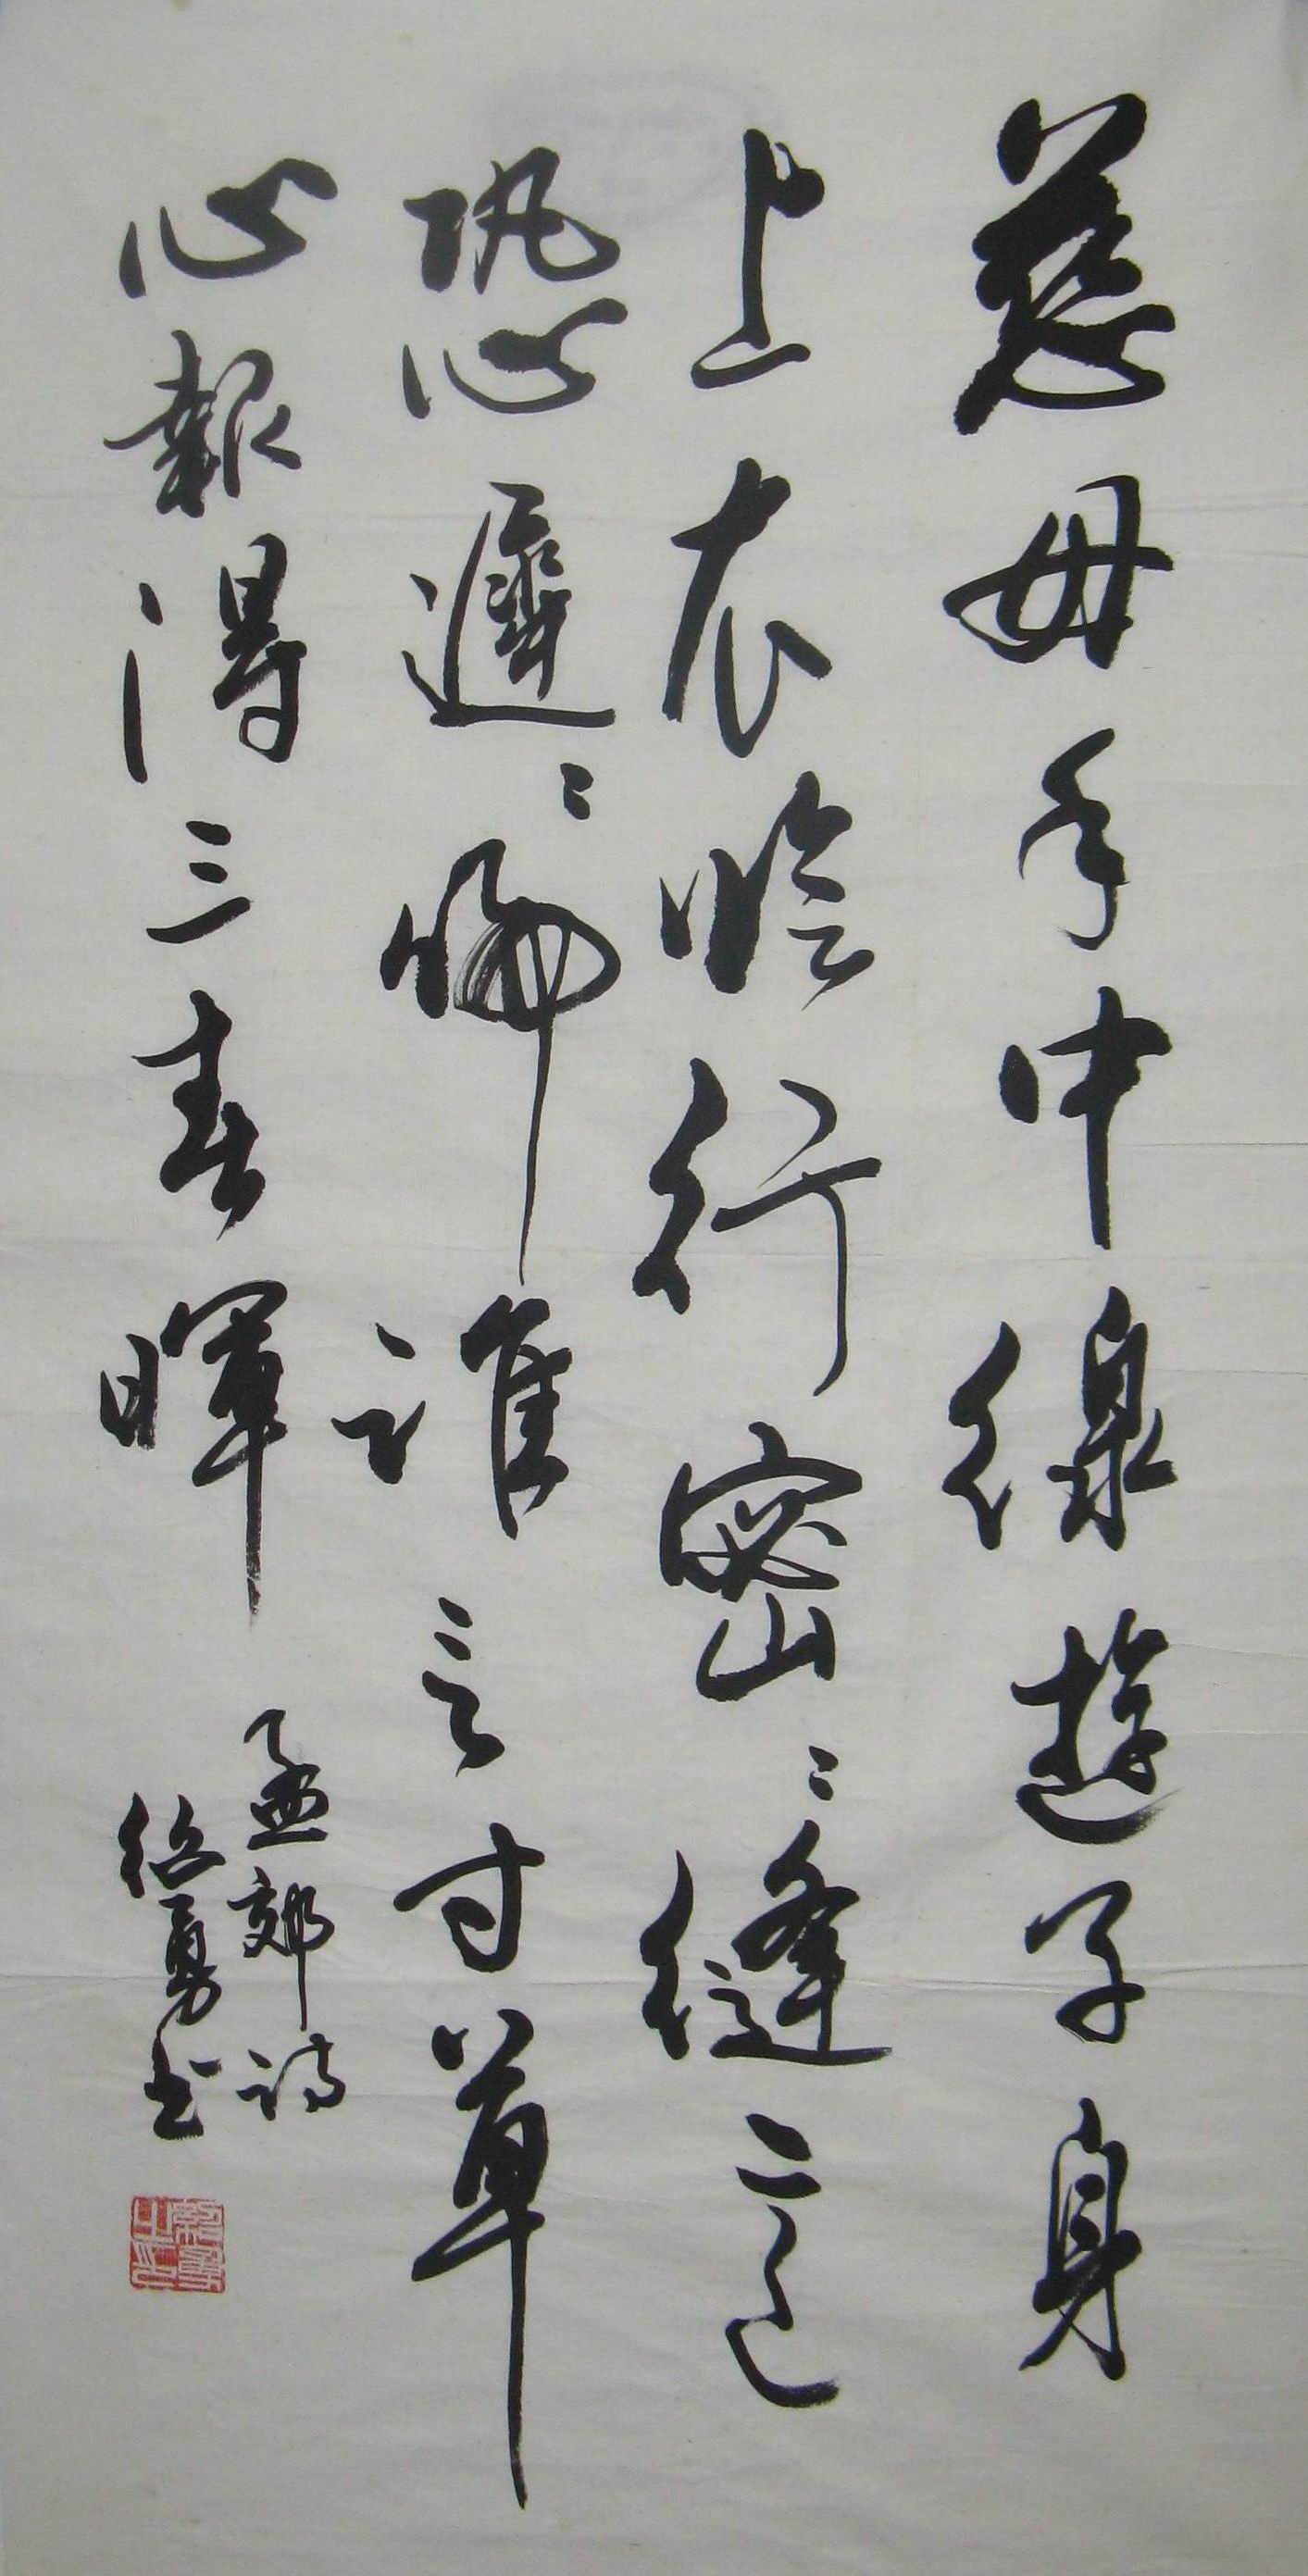 慈母手中線遊子身
上衣臨行密々縫意
恐遲々歸誰言寸草
心報得三春暉
孟郊詩
紹勇书